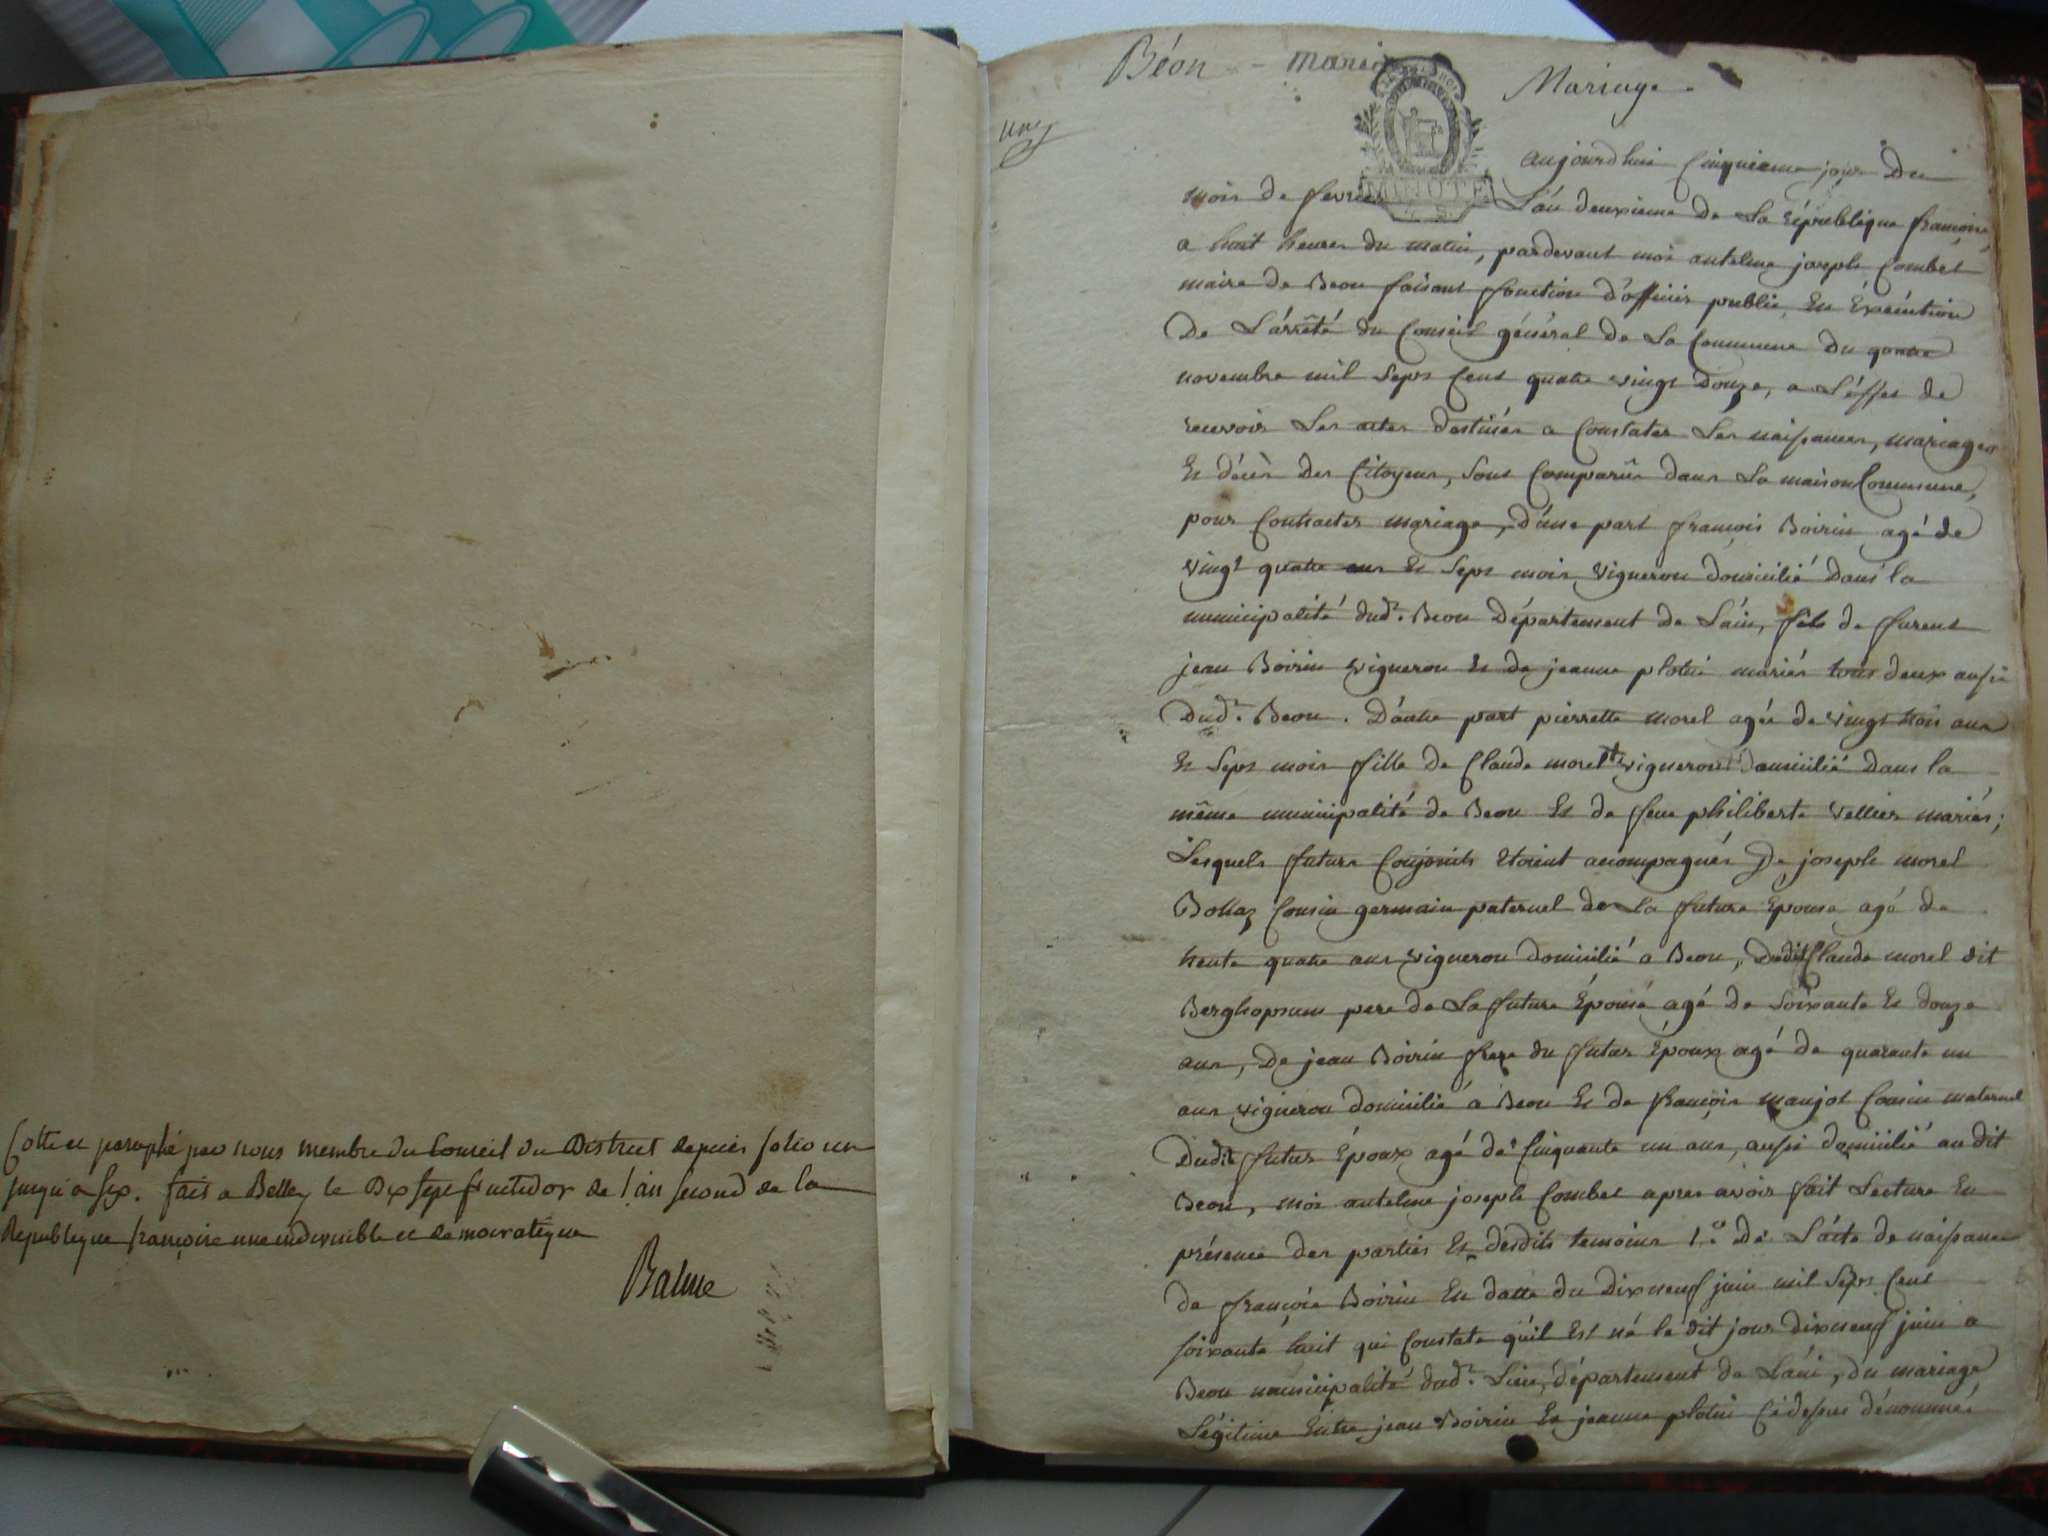 Cotté et paraphé par nous membre du Conseil du District depuis folio un
jusqu'a six. fait a Belley le Dix sept fructidor de l'an second de la
Republique françoise une indivisible et democratique
Balme
Béon - Mariage
Mariage.
un
MINUTE
aujourd'huis Cinquieme jour Du
mois de fevrier L'an deuxieme de La République françoise,
a huit heures du matin, pardevant moi antelme joseph Combet
maire de Beon faisant fonction d'officier public, En Éxécution
De L'árrêté du Conseil général de La Commune du quatre
novembre mil Sept Cent quatre vingt Douze, a L'éffet de
recevoir Les actes destinés a Constater Les naissances, mariages
Et décès Des Citoyens, Sont Comparûs dans La maison Commune,
pour Contracter mariage, D'une part françois Boirin agé de
vingt quatre ans Et Sept mois vigneron domicilié Dans la
municipalité dudt. Beon Département de L'ain, fils de furent
jean Boirin vigneron Et de jeanne plotié mariés tous deux aussi
Dudt. Beon. D'autre part pierrette morel agée de vingt trois ans
Et Sept mois fille de Claude morel vigneron Domicilié Dans la
même municipalité de Beon Et de feue philiberte vettier mariés;
Lesquels futurs Conjoints Etoient acompagnés De joseph morel
Bollaz Cousin germain paternel de La future Epouse agé de
trente quatre ans vigneron domicilié a Beon, Dudit Claude morel dit
Berghopsum pere de La future Épouse agé de Soixante Et douze
ans, De jean Boirin frere du futur Époux agé de quarante un
ans vigneron domicilié á Beon Et de françois maujot Cousin maternel
Dudit futur Époux agé de Cinquante un ans, aussi domicilié au dit
Beon, moi antelme joseph Combet apres avoir fait Lecture En
présence des parties Et desdits temoins 1.° De L'acte de naissance
de françois Boirin En datte du Dix neuf juin mil Sept Cent
soixante huit qui Constate qu'il Est né le dit jour dixneuf juin a
Beon municipalité dudt. Lieu, département de L'ain, du mariage
Légitime Entre jean Boirin Et jeanne plotié Cidessus dénommés